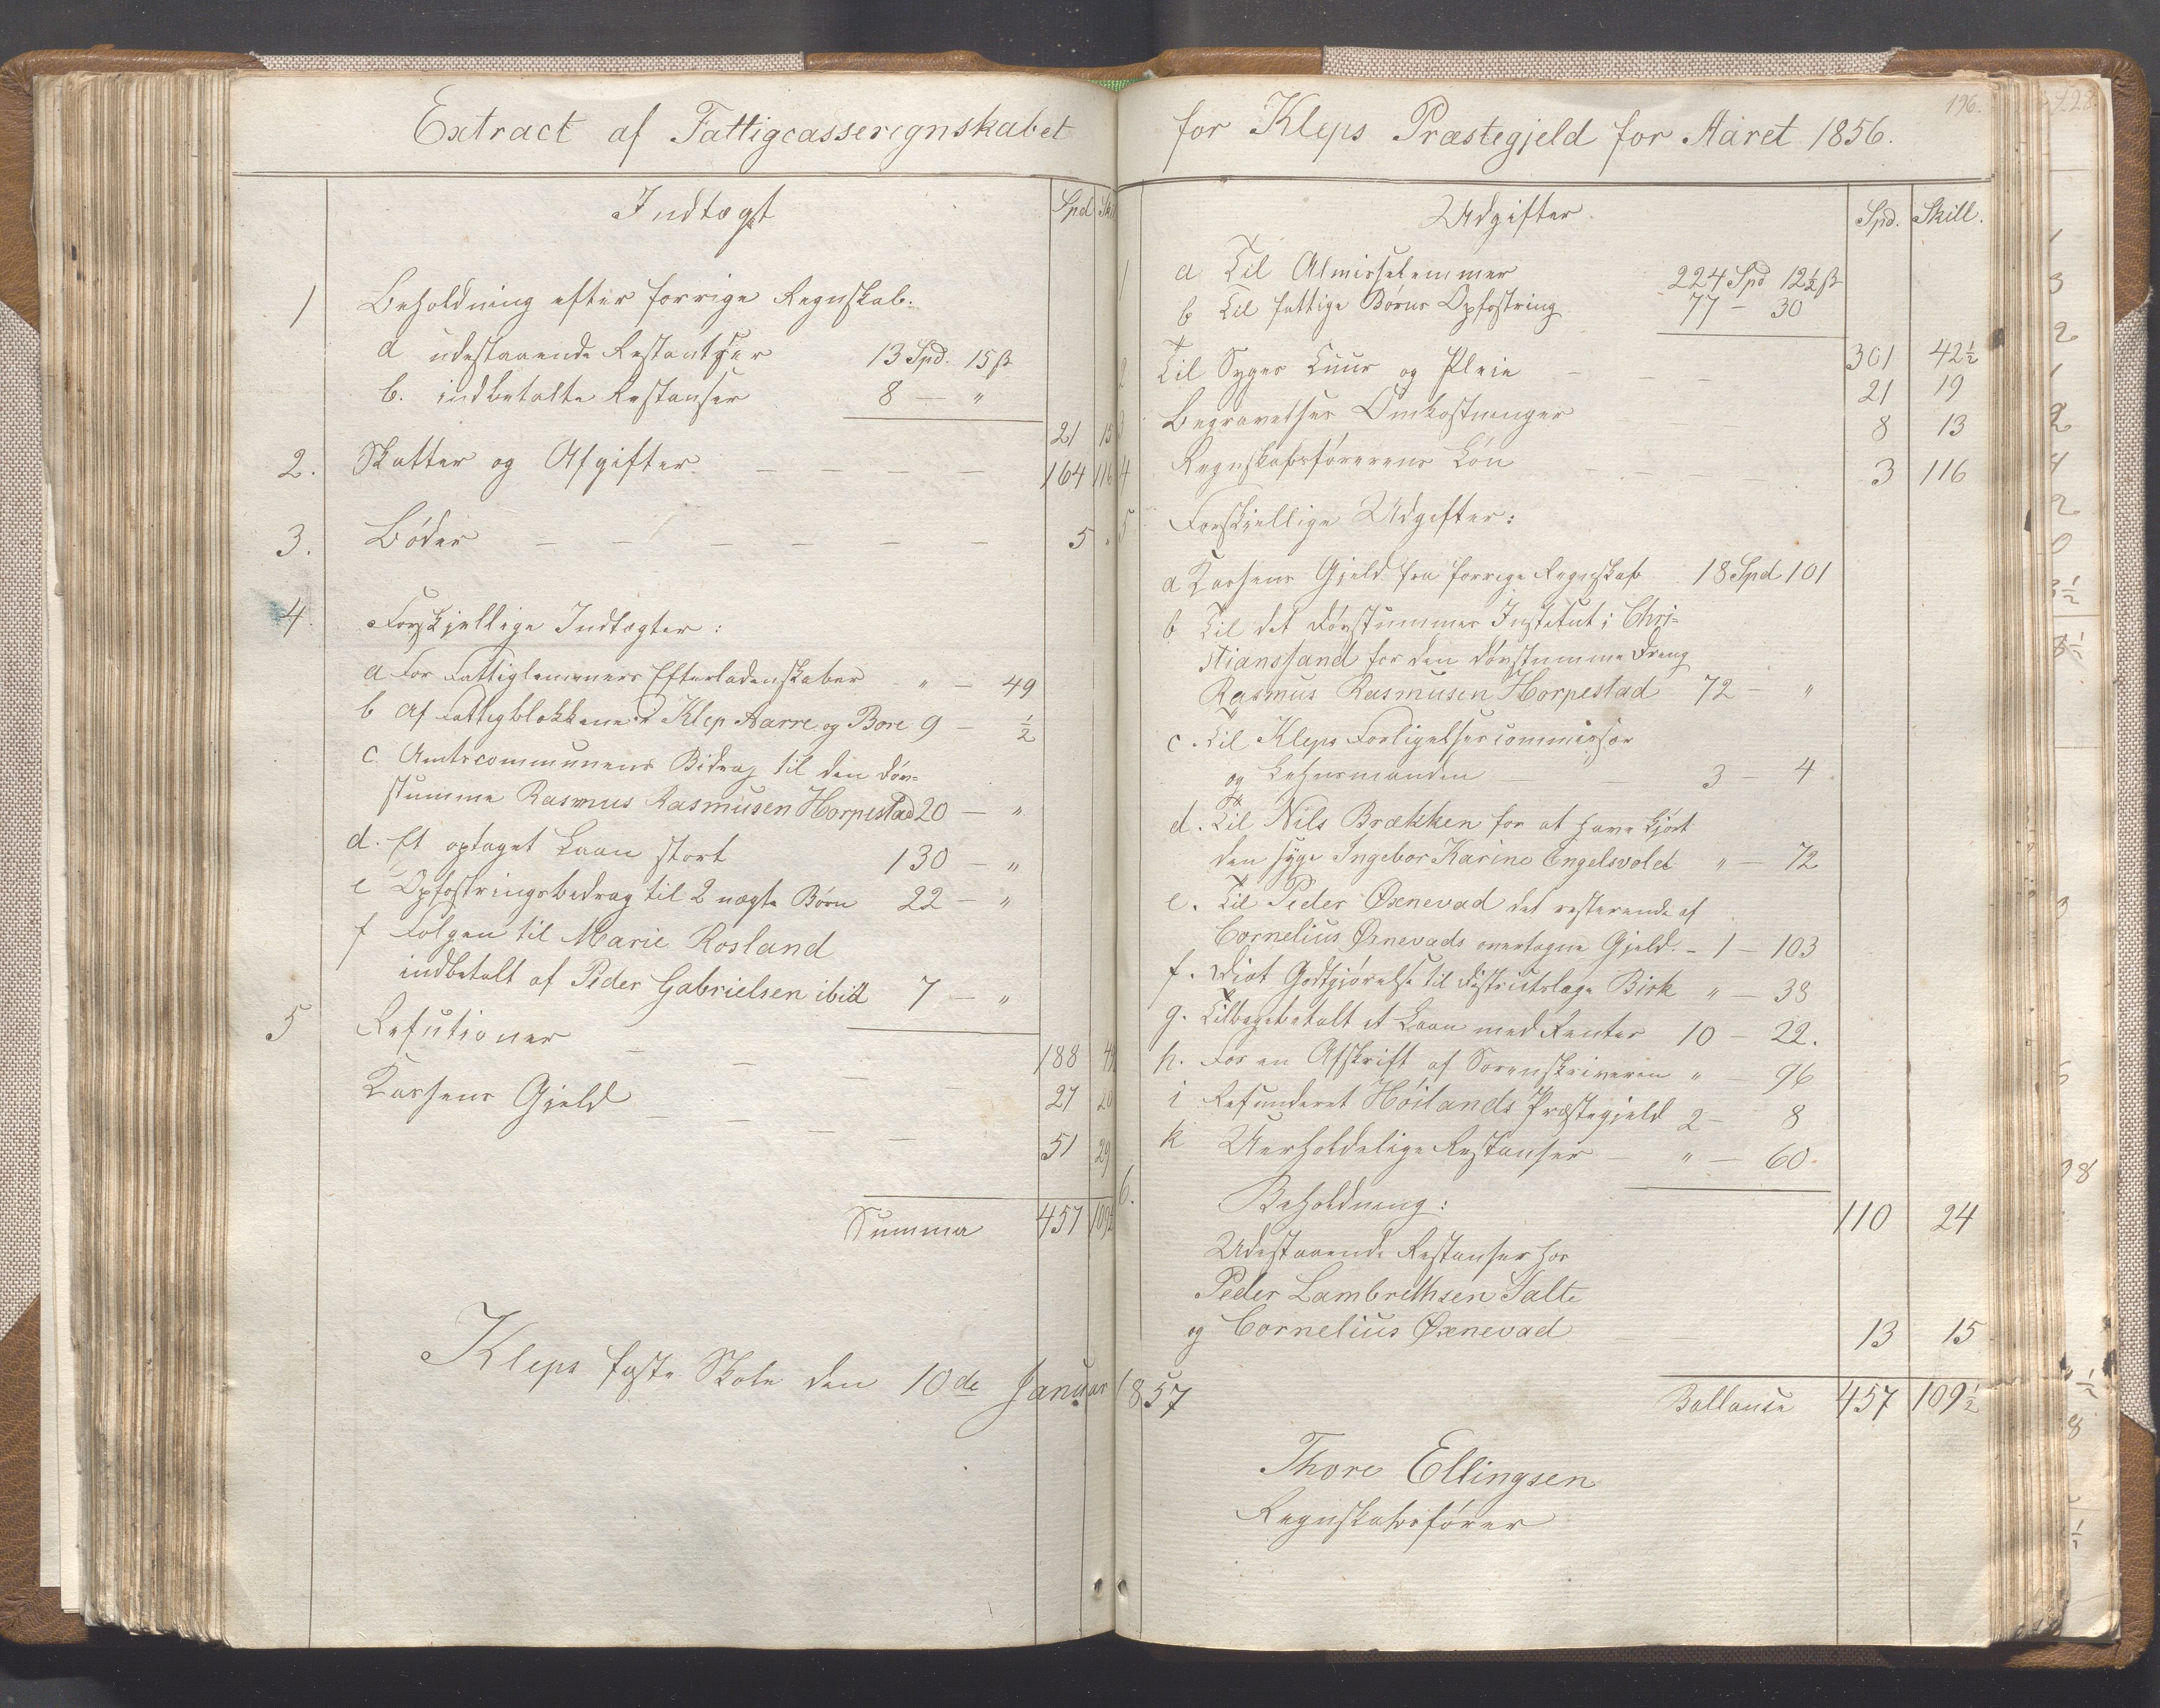 Extract af Fattigcasseregnskabet
Indtægt
Spd
1 Beholdning efter forrige Regnskab:
a udestaaende Restantser 13 Spd. 15 ß
b. indbetalte Restanser 8 — "
21 15
2. Skatter og Afgifter — — — — — 164 116
3. Bøder — — — — — — — 5 "
4. Forskjellige Indtægter:
a For Fattiglemmers Efterladenskaber " — 49
b Af Fattigblokkene i Klep Aarre og Bore 9 — ½
c Amtscommunens Bidrag til den døv=
stumme Rasmus Rasmusen Horpestad 20 — "
d. Et optaget Laan stort 130 — "
e Opfostringsbidrag til 2 uægte Børn 22 — "
f Følgen til Marie Rosland
indbetalt af Peder Gabrielsen ibid 7 — "
188
5 Refutioner — — — — 27
Kassens Gjeld — — — — 51 29
Summa 457 109½
Kleps faste Skole den 10de Januar 1857
196.
for Kleps Præstegjeld for Aaret 1856.
Udgifter.
Spd. Skill.
1 a Til Almisselemmer 224 Spd 12½ ß
b Til fattige Børns Opfostring 77 — 30
301 42½
2 Til Syges Kuur og Pleie — — — 21 19
3 Begravelses Omkostninger — — 8 13
4 Regnskabsførerens Løn — — — — 3 116
5 Forskjellige Udgifter:
a Kassens Gjeld fra forrige Regnskab 18 Spd 101
b Til det Døvstummes Institut i Chri=
stianssand for den døvstumme Dreng
Rasmus Rasmusen Horpestad 72 — "
c. Til Kleps Forligelsescommissær
og Lehnsmanden — — 3 4
d. Til Nils Brækken for at have kjørt
den syge Ingebor Karine Engelsvold " — 72
e. Til Peder Øxnevad det resterende af
Cornelius Øxnevads overtagne Gjeld. — 1 — 103
f. Diæt Godtgjørelse til Districtslæge Birk " — 38
g. Tilbagebetalt et Laan med Renter 10 — 22.
h. For en Afskrift af Sorenskriveren " — 96
i Refunderet Høilands Præstegjeld 2 — 8
k Uerholdelige Restanser — " — 60.
110 24
6. Beholdning:
Udestaaende Restanser hos
Peder Lambrethsen Salte
og Cornelius Øxnevad 13 15
Ballance 457 109½
Thore Ellingsen
Regnskabsfører